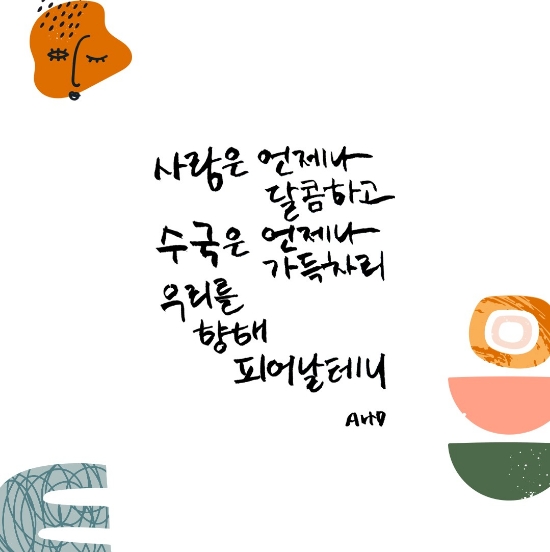 사랑은 언제나
달콤하고
수국은 언제나
가득차리
우리를
향해
피어날테니